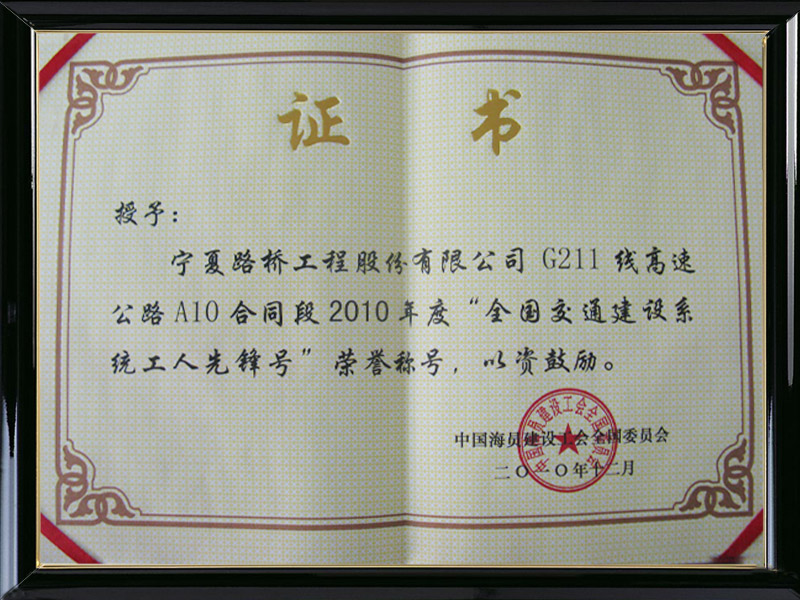 证 书
授予：
宁夏路桥工程股份有限公司 G211 线高速
公路 A10 合同段 2010 年度“全国交通建设系
统工人先锋号”荣誉称号，以资鼓励。
中国海员建设工会全国委员会
二〇一〇年十二月
中国海员建设工会全国委员会